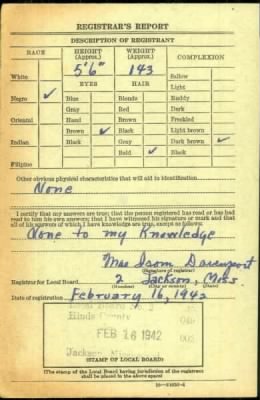 REGISTRAR'S REPORT
DESCRIPTION OF REGISTRANT
RACE
HEIGHT (Approx.)
WEIGHT (Approx.)
COMPLEXION
5'6"
143
White
EYES
HAIR
Sallow
Light
Negro ✓
Blue
Blonde
Ruddy
Gray
Red
Dark
Oriental
Hazel
Brown
Freckled
Brown ✓
Black
Light brown
Indian
Black
Gray
Dark brown ✓
Bald ✓
Black
Filipino
Other obvious physical characteristics that will aid in identification
None
I certify that my answers are true; that the person registered has read or has had
read to him his own answers; that I have witnessed his signature or mark and that
all of his answers of which I have knowledge are true, except as follows:
None to my Knowledge
Mrs Davenport
(Signature of registrar)
Registrar for Local Board 2 Jackson, Miss.
(Number) (City or county) (State)
Date of registration February 16, 1942
Local Board
Hinds County
FEB 16 1942
Jackson, Miss
(STAMP OF LOCAL BOARD)
(The stamp of the Local Board having jurisdiction of the registrant
shall be placed in the above space)